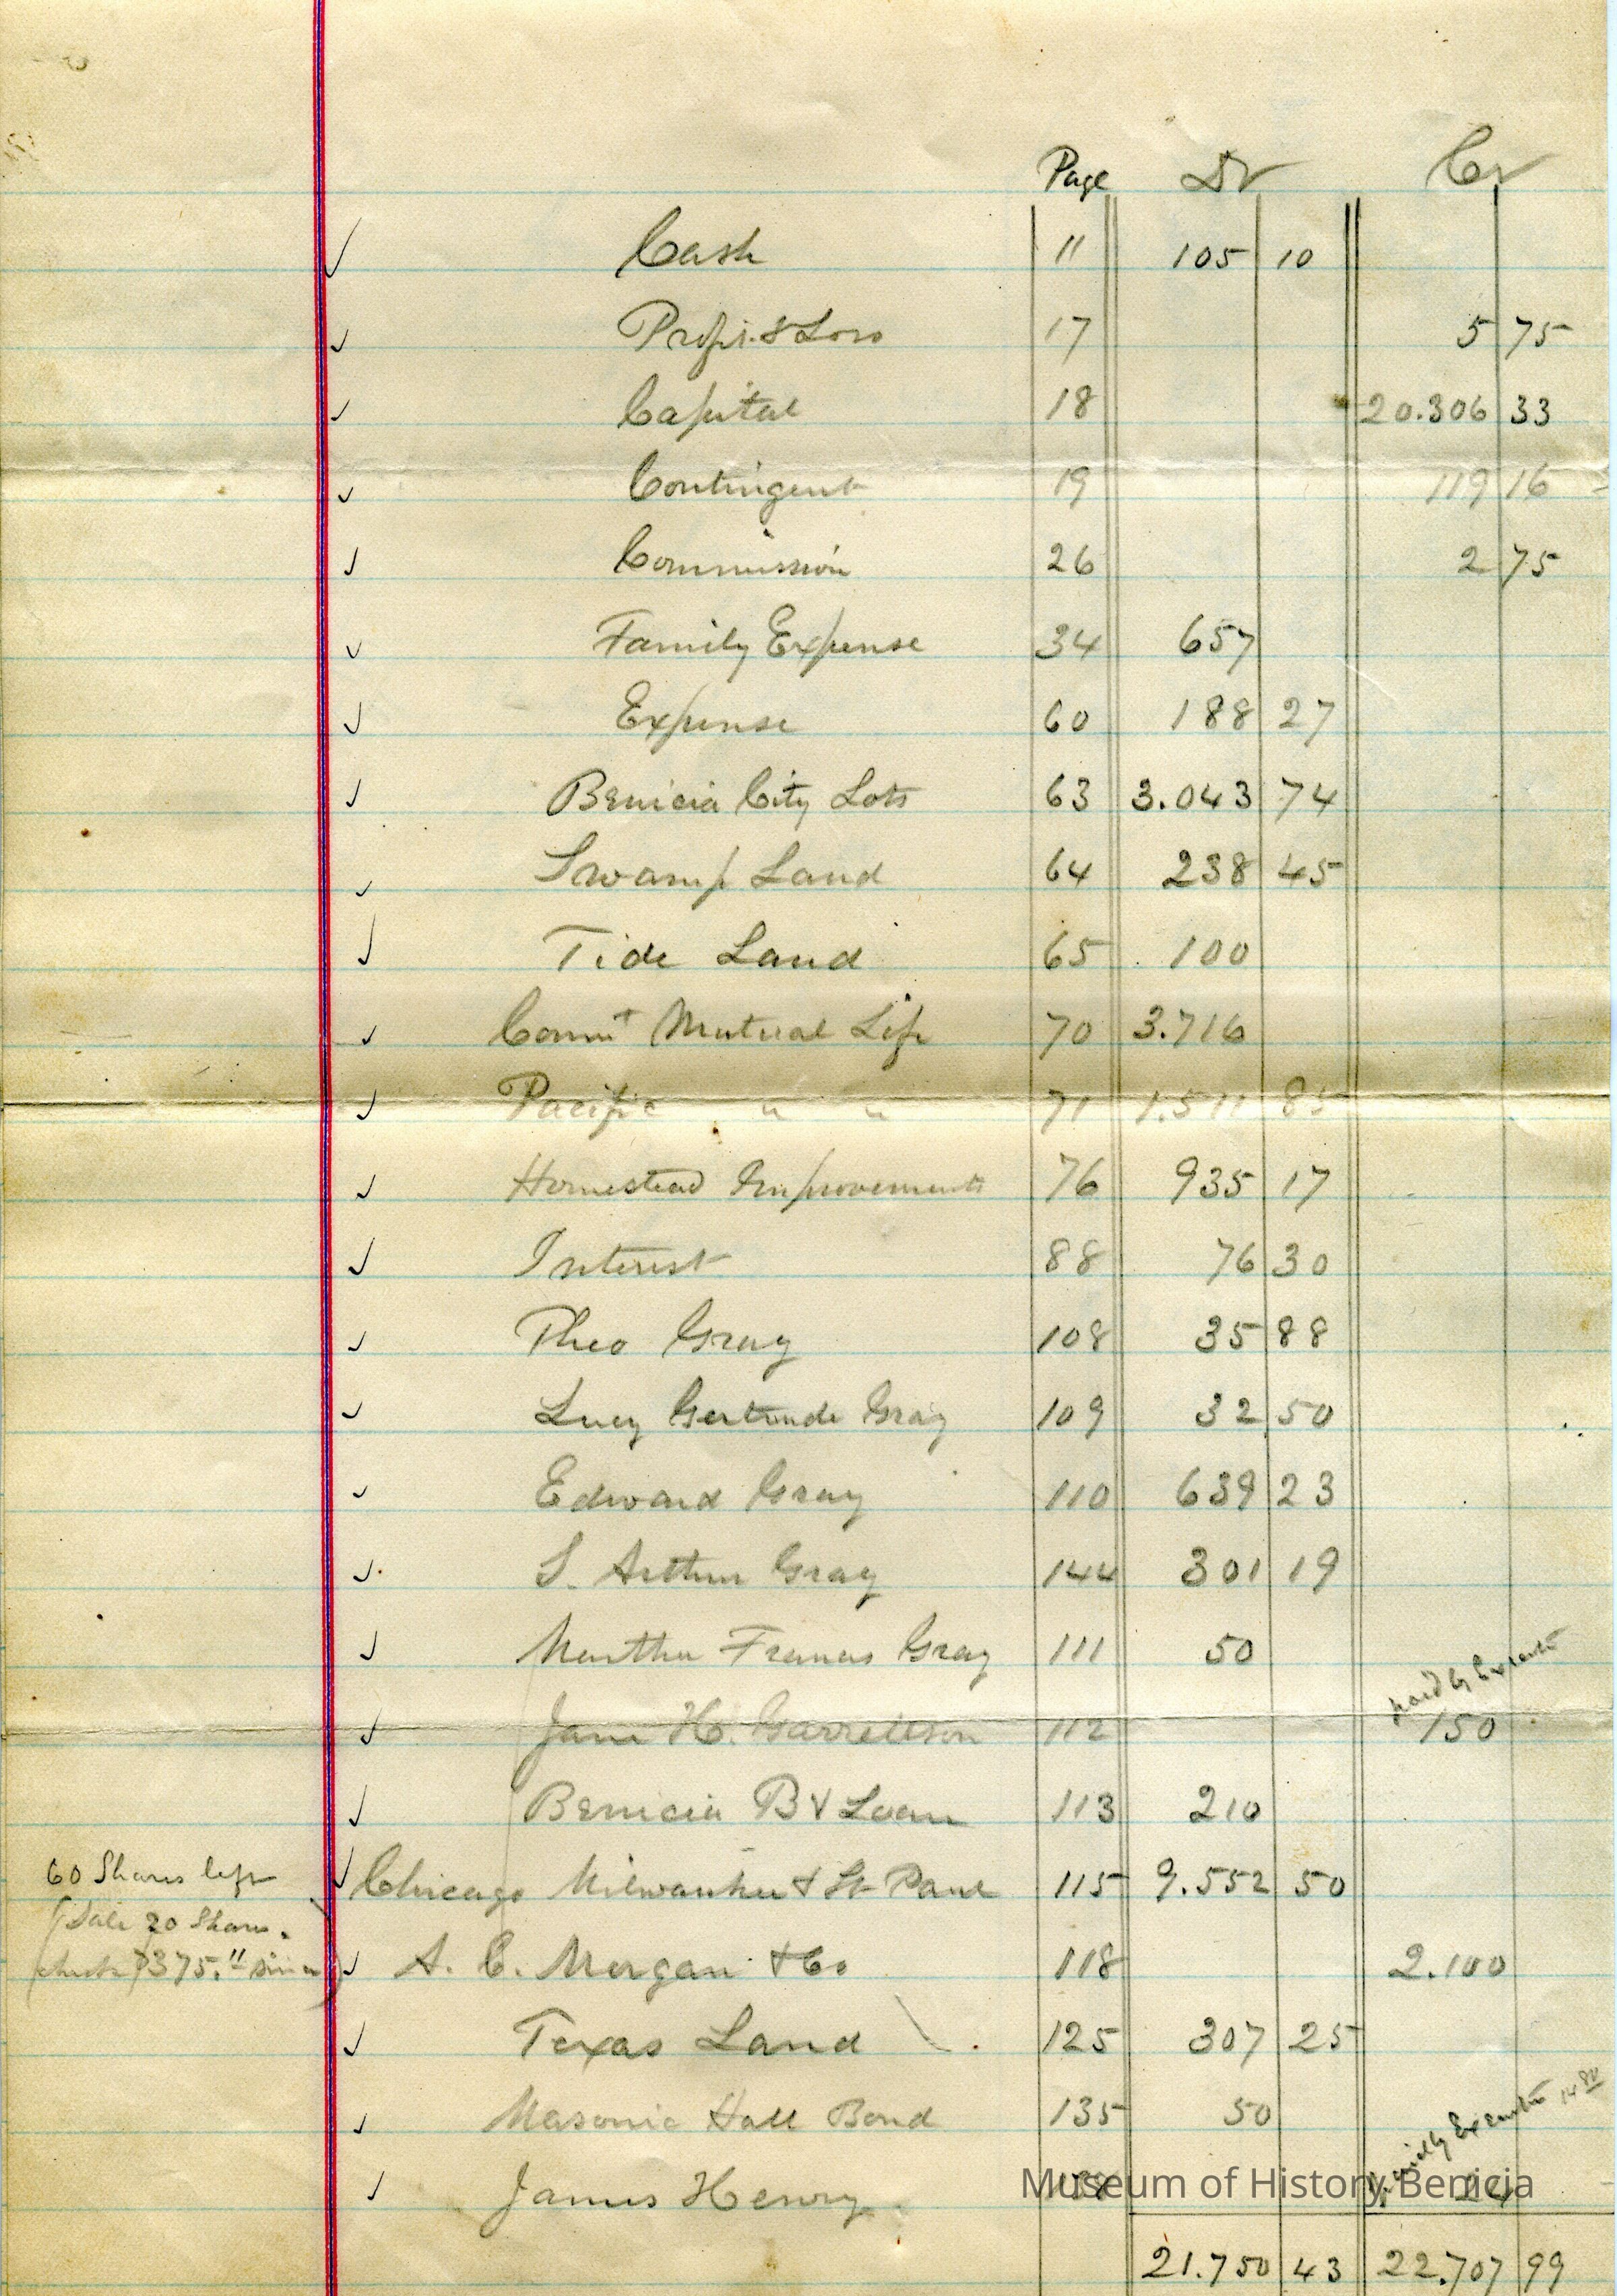 Page Dr Cr
Cash 11 105 10
Profit & Loss 17 5 75
Capital 18 20.306 33
Contingent 19 119 16
Commission 26 2 75
Family Expense 34 657
Expense 60 188 27
Benicia City Lots 63 3.043 74
Swamp Land 64 238 45
Tide Land 65 100
Connt Mutual Life 70 3.716
Pacific " " 71 1.511 85
Homestead Improvements 76 935 17
Interest 88 76 30
Theo Gray 108 35 88
Lucy Gertrude Gray 109 32 50
Edward Gray 110 639 23
S. Arthur Gray 144 301 19
Martha Frances Gray 111 50
paid by Executor
Jane H. Garretson 112 150
Benicia B & Loan 113 210
60 Shares left
Chicago Milwaukee & St Paul 115 9.552 50
Sale 20 Shares.
A. C. Morgan & Co 118 2.100
Texas Land 125 307 25
Masonic Hall Bond 135 50
paid by Executor 14 80
James Henry 24
Museum of History Benicia
21.750 43 22.707 99